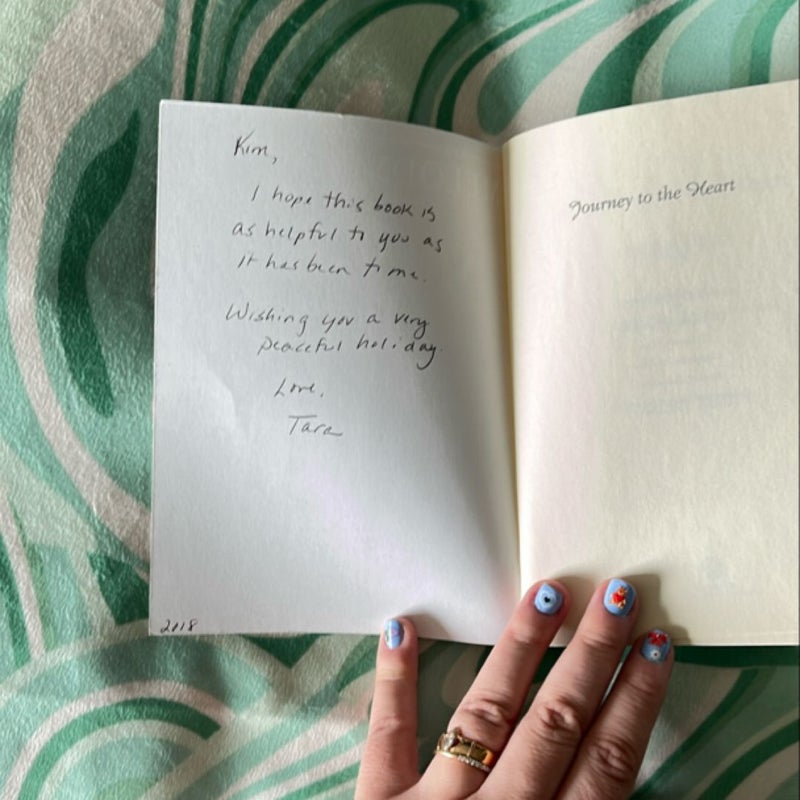 Kim,
I hope this book is
as helpful to you as
it has been to me.
Wishing you a very
peaceful holiday.
Love,
Tara
2018
Journey to the Heart